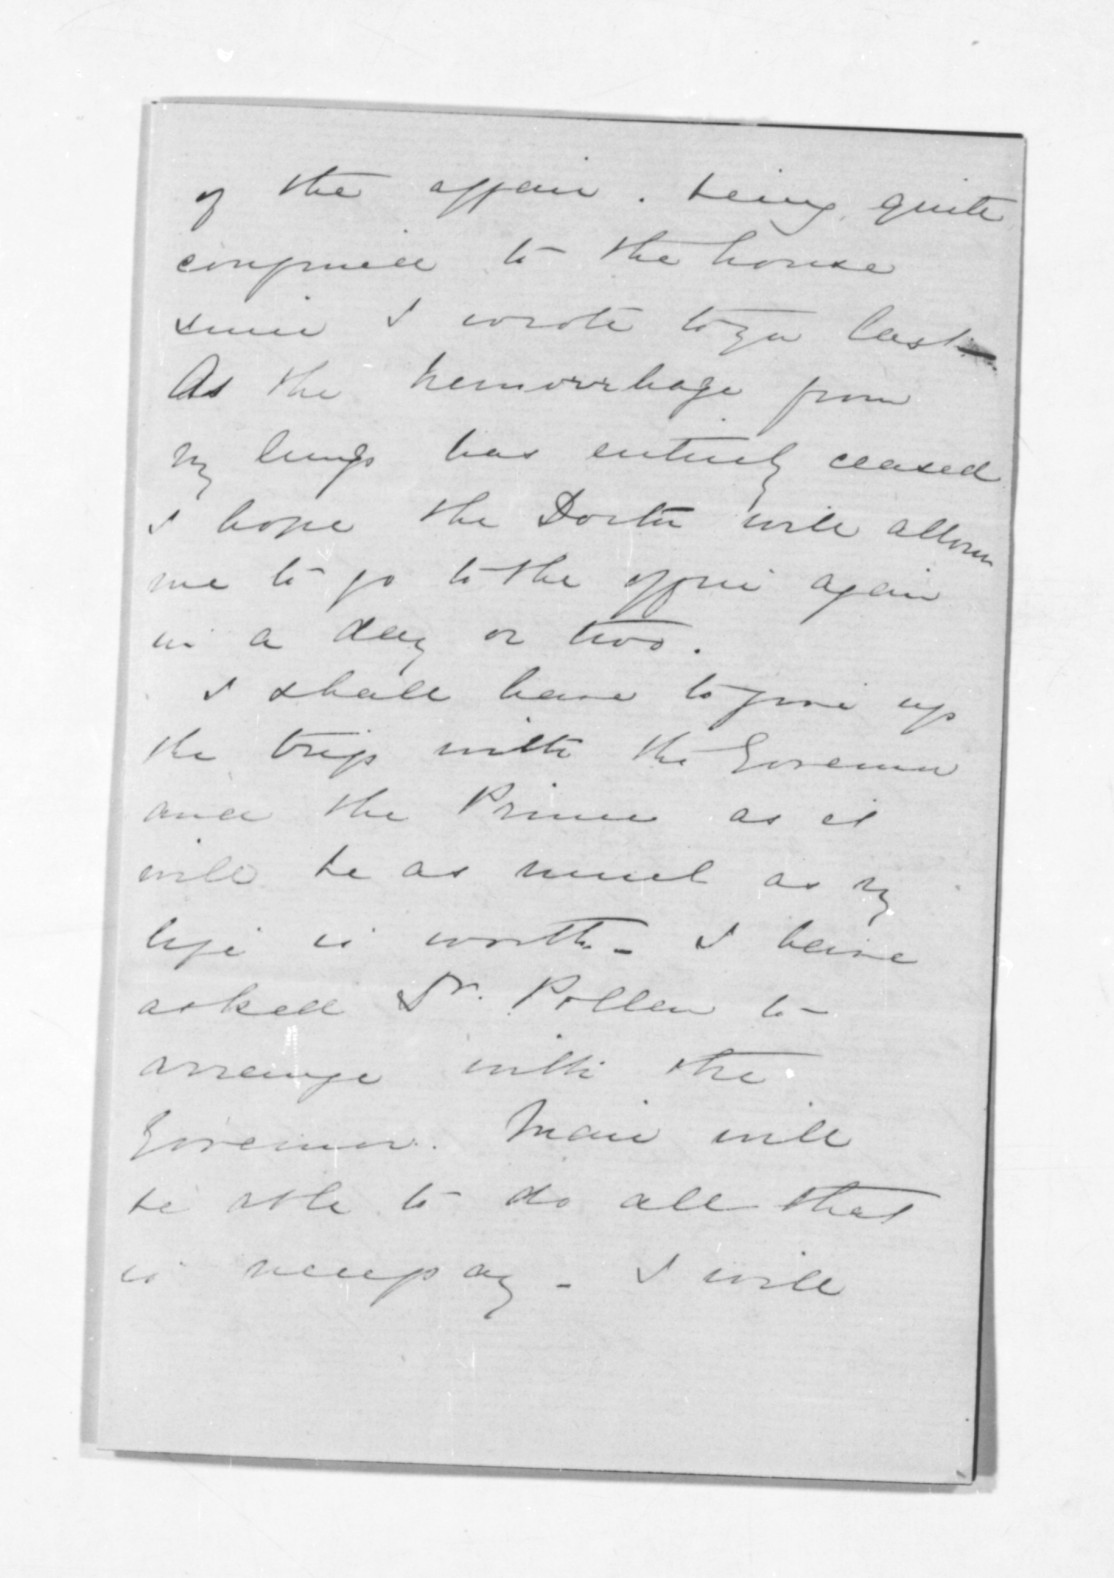 of the affair. being quite
confined to the house
since I wrote to you last
As the hemorrhage from
my lungs has entirely ceased
I hope the Doctor will allow
me to go to the office again
in a day or two.
I shall have to give up
the trip with the Governor
and the Prince as it
will be as much as my
life is worth - I have
asked Dr. Pollen to
arrange with the
Governor. Mair will
be able to do all that
is necessary - I will